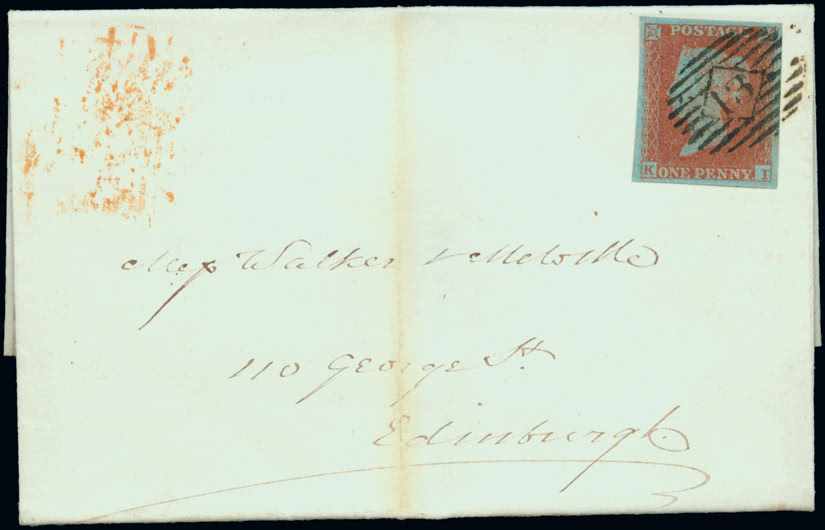 POSTAGE
13
K I
ONE PENNY
Walker & Melville
110 George St.
Edinburgh